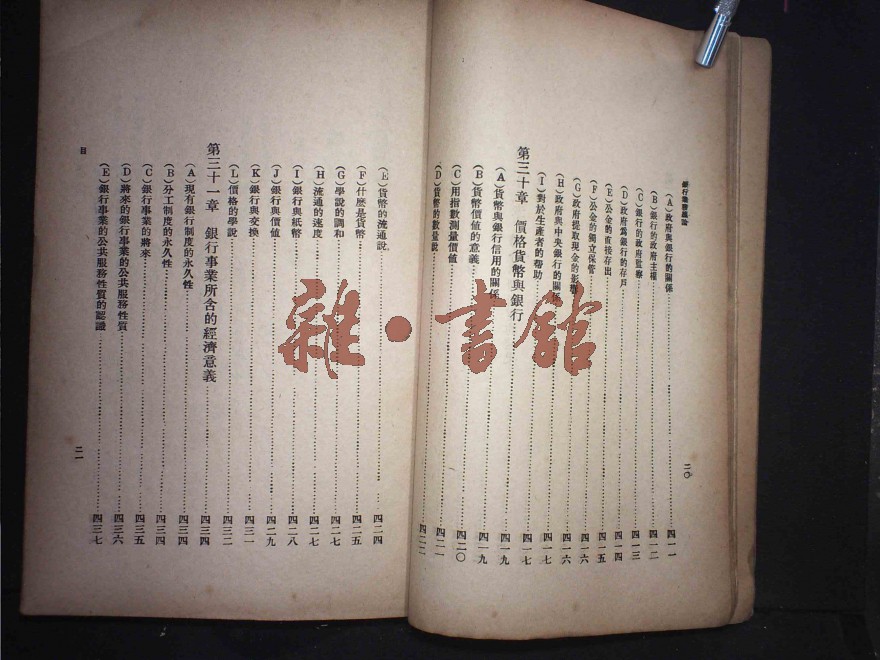 二〇
(A)政府與銀行的關係……四一一
(B)銀行的政府主權……四一二
(C)銀行的政府監察……四一三
(D)政府為銀行的存戶……四一四
(E)公金的直接存出……四一五
(F)公金的獨立保管……四一六
(G)政府提取現金的影響……四一六
(H)政府與中央銀行的關係……四一六
(I)對於生產者的幫助……四一七
第三十章 價格貨幣與銀行……四一七
(A)貨幣與銀行信用的關係……四一九
(B)貨幣價值的意義……四一九
(C)用指數測量價值……四二〇
(D)貨幣的數量說……四二二
(E)貨幣的流通說……四二四
(F)什麼是貨幣……四二五
(G)學說的調和……四二七
(H)流通的速度……四二七
(I)銀行與紙幣……四二八
(J)銀行與價值……四二九
(K)銀行與交換……四三一
(L)價格的學說……四三二
第三十一章 銀行事業所含的經濟意義……四三四
(A)現有銀行制度的永久性……四三四
(B)分工制度的永久性……四三四
(C)銀行事業的將來……四三五
(D)將來的銀行事業的公共服務性質……四三六
(E)銀行事業的公共服務性質的認識……四三七
目
二一
雜·書館